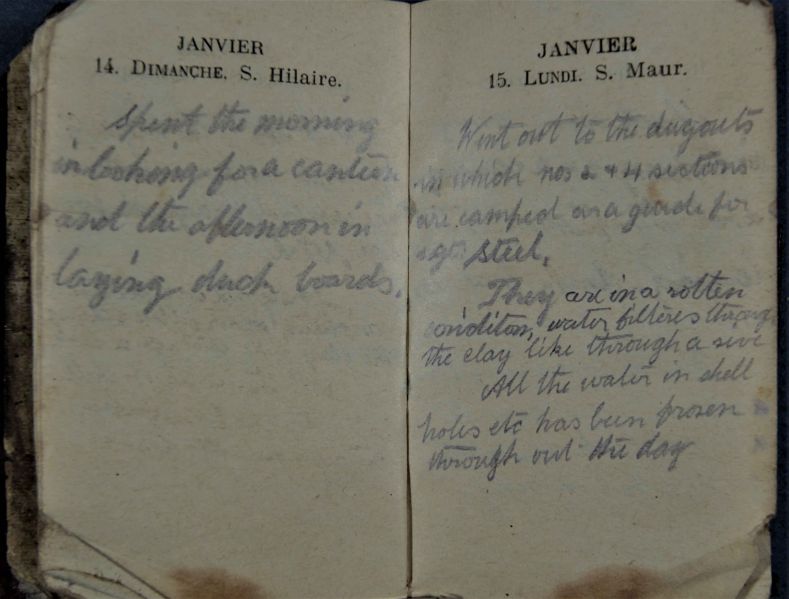 JANVIER
14. DIMANCHE. S. Hilaire.
Spent the morning
in looking for a canteen
and the afternoon in
laying duck boards.
JANVIER
15. LUNDI. S. Maur.
Went out to the dugouts
in which nos 2 & 4 sections
are camped as a guide for
Steel.
They are in a rotten
conditon, water filteres through
the clay like through a sive
All the water in shell
holes etc has been frozen
through out the day